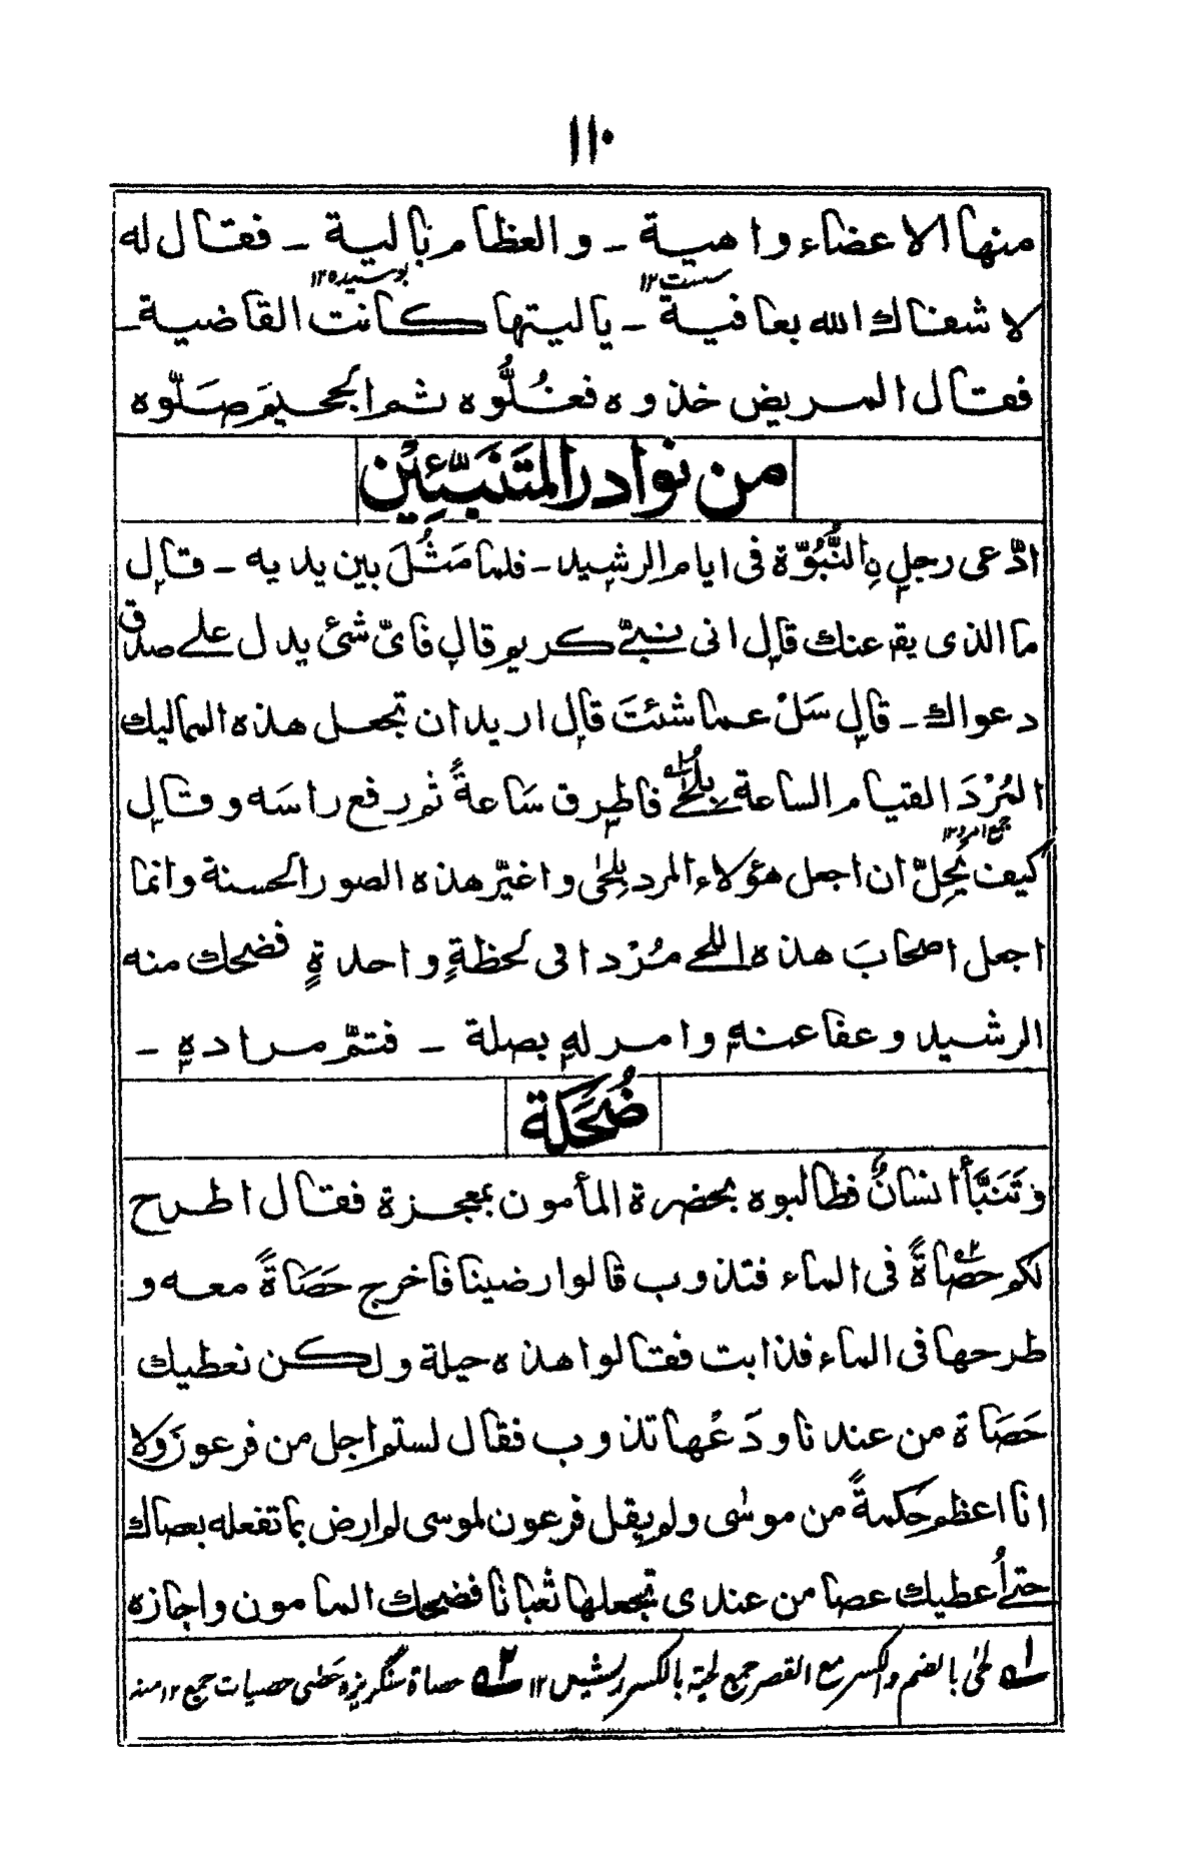 ١١٠
منها الاعضاء واهية - والعظام بالية - فقال له
سست ١٢ بوسیدہ ١٢
لا شفاك الله بعافية - يا ليتها كانت القاضية -
فقال المريض خذوه فغُلُّوه ثم الجحيمَ صَلّوه
من نوادر المتَنَبِّئِين
ادّعى رجل النُّبُوّة فى ايام الرشيد - فلما مَثُلَ بين يديه - قال
ما الذى يقع عنك قال انى نبىّ كريم قال فاىّ شئ يدل على صدق
دعواك - قال سَلْ عما شئتَ قال اريد ان تجعل هذه المماليك
المُرْدَ القيام الساعة بلُحىٰ فاطرق سَاعةً ثم رفع راسَه وقال
جمع امرد ١٢
كيف يَحِلّ ان اجعل هؤلاء المرد بلِحٰى واغيّر هذه الصور الحسنة وانما
اجعل اصحابَ هذه اللحى مُرْدا فى لحظةٍ واحدةٍ فضحك منه
الرشيد وعفا عنه وامر له بصلة - فتمّ مراده -
ضُحَكَة
وتَنَبَّأ انسانٌ فطالبوه بحضرة المأمون بمعجزة فقال اطرح
لكم حصَاةً فى الماء فتذوب قالوا رضينا فاخرج حَصَاةً معه و
طرحها فى الماء فذابت فقالوا هذه حيلة ولكن نعطيك
حَصَاة من عندنا ودَعْها تذوب فقال لستم اجل من فرعون ولا
انا اعظم حكمةً من موسٰى ولم يقل فرعون لموسى لم ارض بما تفعله بعصاك
حتى اُعطيك عصا من عندى تجعلها ثعبانا فضحك المامون واجازه
١ لحٰى بالضم والكسر مع القصر جمع لحية بالكسر ریش ١٢ ٢ حصاة سنگریزہ حَصٰى حصيات جمع ١٢ منه